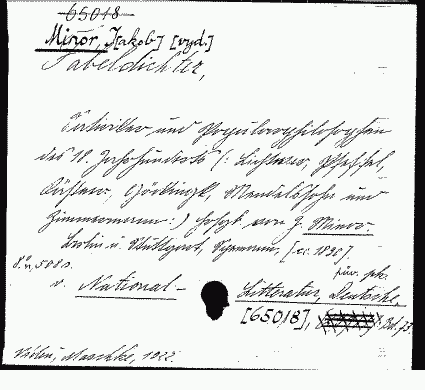 65018
Minor, J[akob] [vyd.]
Fabeldichter,
Satiriker und Popularphilosophen
des 18. Jahrhunderts (: Lichtwer, Pfeffel,
Kästner, Göckingk, Mendelssohn und
Zimmermann :) hrsgb. von J. Minor.
Berlin u. Stuttgart, Spemann, [ca. 1890].
8°, 508 s.
v. National-
Litteratur, Deutsche,
[65018], Bd. 73.
1922.